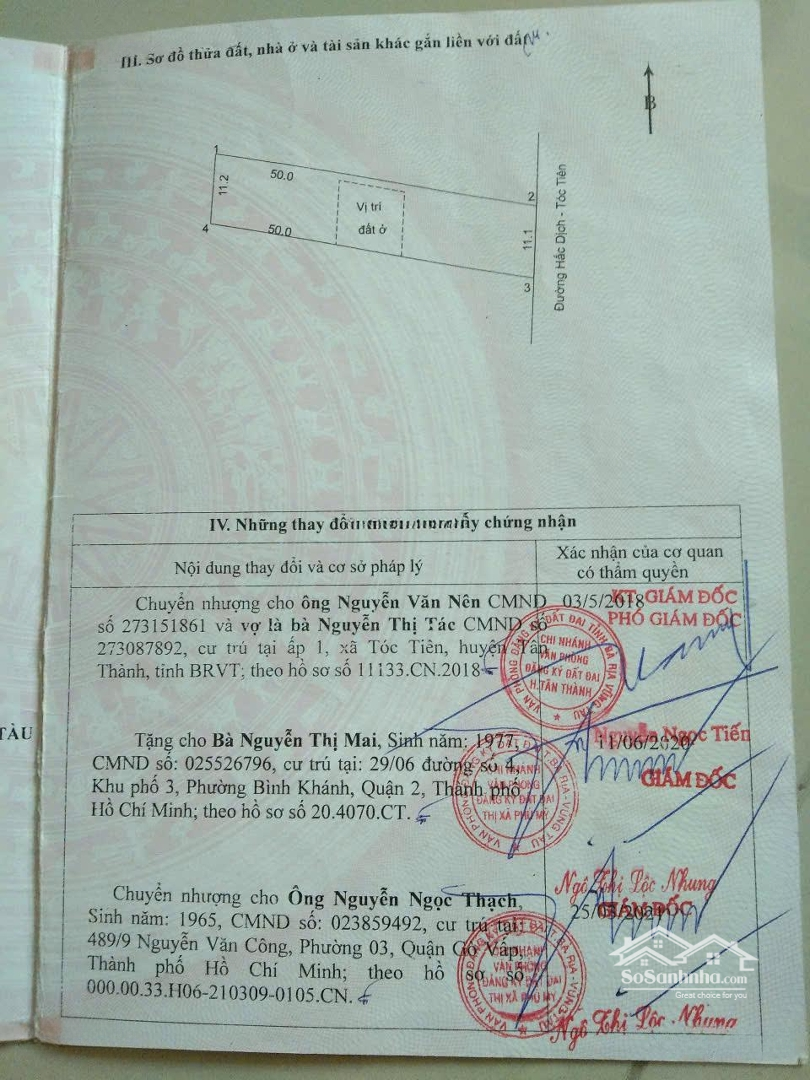 III. Sơ đồ thửa đất, nhà ở và tài sản khác gắn liền với đất
B
1
50.0
2
11.2
Vị trí
đất ở
11.1
4
50.0
3
Đường Hắc Dịch - Tóc Tiên
IV. Những thay đổi giấy chứng nhận
Nội dung thay đổi và cơ sở pháp lý
Xác nhận của cơ quan
có thẩm quyền
Chuyển nhượng cho ông Nguyễn Văn Nên CMND
số 273151861 và vợ là bà Nguyễn Thị Tác CMND số
273087892, cư trú tại ấp 1, xã Tóc Tiên, huyện Tân
Thành, tỉnh BRVT; theo hồ sơ số 11133.CN.2018
03/5/2018
KT. GIÁM ĐỐC
PHÓ GIÁM ĐỐC
VĂN PHÒNG ĐĂNG KÝ ĐẤT ĐAI TỈNH BÀ RỊA VŨNG TÀU
CHI NHÁNH
VĂN PHÒNG
ĐĂNG KÝ ĐẤT ĐAI
H.TÂN THÀNH
Ngọc Tiến
TÀU
Tặng cho Bà Nguyễn Thị Mai, Sinh năm: 1977,
CMND số: 025526796, cư trú tại: 29/06 đường số 4,
Khu phố 3, Phường Bình Khánh, Quận 2, Thành phố
Hồ Chí Minh; theo hồ sơ số 20.4070.CT.
11/06/2020
GIÁM ĐỐC
CHI NHÁNH
VĂN PHÒNG
ĐĂNG KÝ ĐẤT ĐAI
THỊ XÃ PHÚ MỸ
Ngô Thị Lộc Nhung
Chuyển nhượng cho Ông Nguyễn Ngọc Thạch,
Sinh năm: 1965, CMND số: 023859492, cư trú tại:
489/9 Nguyễn Văn Công, Phường 03, Quận Gò Vấp,
Thành phố Hồ Chí Minh; theo hồ sơ số
000.00.33.H06-210309-0105.CN.
GIÁM ĐỐC
CHI NHÁNH
VĂN PHÒNG
ĐĂNG KÝ ĐẤT ĐAI
THỊ XÃ PHÚ MỸ
Ngô Thị Lộc Nhung
SoSanhnha.com
Great choice for you